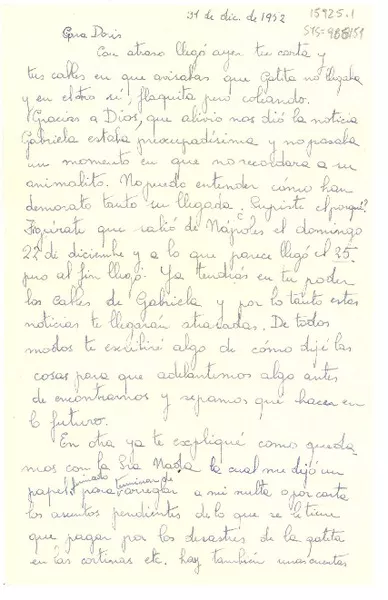 31 de dic. de 1952
15925.1
Cara Doris
Con atraso llegó ayer tu carta y
tus cables en que avisabas que Gatita no llegaba
y en el otro sí, flaquita pero coleando.
Gracias a Dios, que alivio nos dió la noticia
Gabriela estaba preocupadísima y no pasaba
un momento en que no recordara a su
animalito. No puedo entender cómo han
demorado tanto su llegada. Supiste el porqué?
Figúrate que salió de Nápoles el domingo
22 de diciembre y a lo que parece llegó el 25.
pero al fin llegó. Ya tendrás en tu poder
los cables de Gabriela y por lo tanto estas
noticias te llegarán atrasadas. De todos
modos te escribiré algo de cómo dejé las
cosas para que adelantemos algo antes
de encontrarnos y sepamos qué hacer en
lo futuro.
En otra ya te expliqué como queda
mos con la Sra Nada la cual me dejó un
papel firmado para terminar de arreglar a mi vuelta o por carta
los asuntos pendientes de lo que se le tiene
que pagar por los desastres de la gatita
en las cortinas etc. hay también unas cuentas